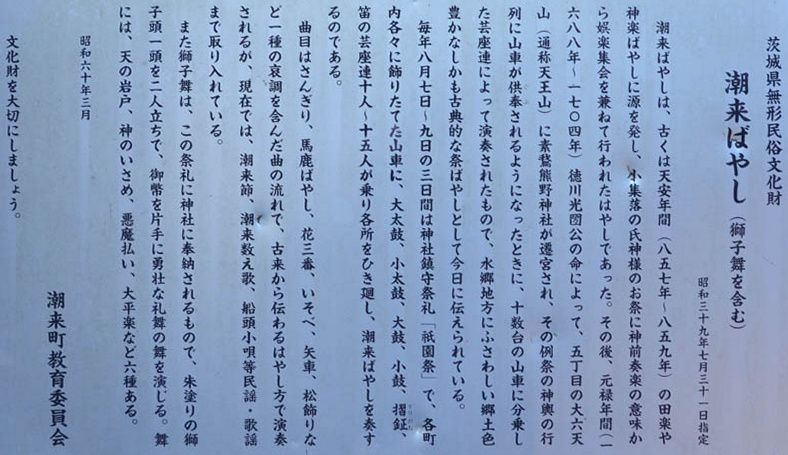 茨城県無形民俗文化財
潮来ばやし（獅子舞を含む）
昭和三十九年七月三十一日指定
潮来ばやしは、古くは天安年間（八五七年～八五九年）の田楽や
神楽ばやしに源を発し、小集落の氏神様のお祭に神前奏楽の意味か
ら娯楽集会を兼ねて行われたはやしであった。その後、元禄年間（一
六八八年～一七〇四年）徳川光圀公の命によって、五丁目の大六天
山（通称天王山）に素鵞熊野神社が遷宮され、その例祭の神輿の行
列に山車が供奉されるようになったときに、十数台の山車に分乗し
た芸座連によって演奏されたもので、水郷地方にふさわしい郷土色
豊かなしかも古典的な祭ばやしとして今日に伝えられている。
毎年八月七日～九日の三日間は神社鎮守祭礼「祇園祭」で、各町
内各々に飾りたてた山車に、大太鼓、小太鼓、大鼓、小鼓、摺鉦、
笛の芸座連十人～十五人が乗り各所をひき廻し、潮来ばやしを奏す
るのである。
曲目はさんぎり、馬鹿ばやし、花三番、いそべ、矢車、松飾りな
ど一種の哀調を含んだ曲の流れで、古来から伝わるはやし方で演奏
されるが、現在では、潮来節、潮来数え歌、船頭小唄等民謡・歌謡
まで取り入れている。
また獅子舞は、この祭礼に神社に奉納されるもので、朱塗りの獅
子頭一頭を二人立ちで、御幣を片手に勇壮な礼舞の舞を演じる。舞
には、天の岩戸、神のいさめ、悪魔払い、大平楽など六種ある。
昭和六十年三月
潮来町教育委員会
文化財を大切にしましょう。